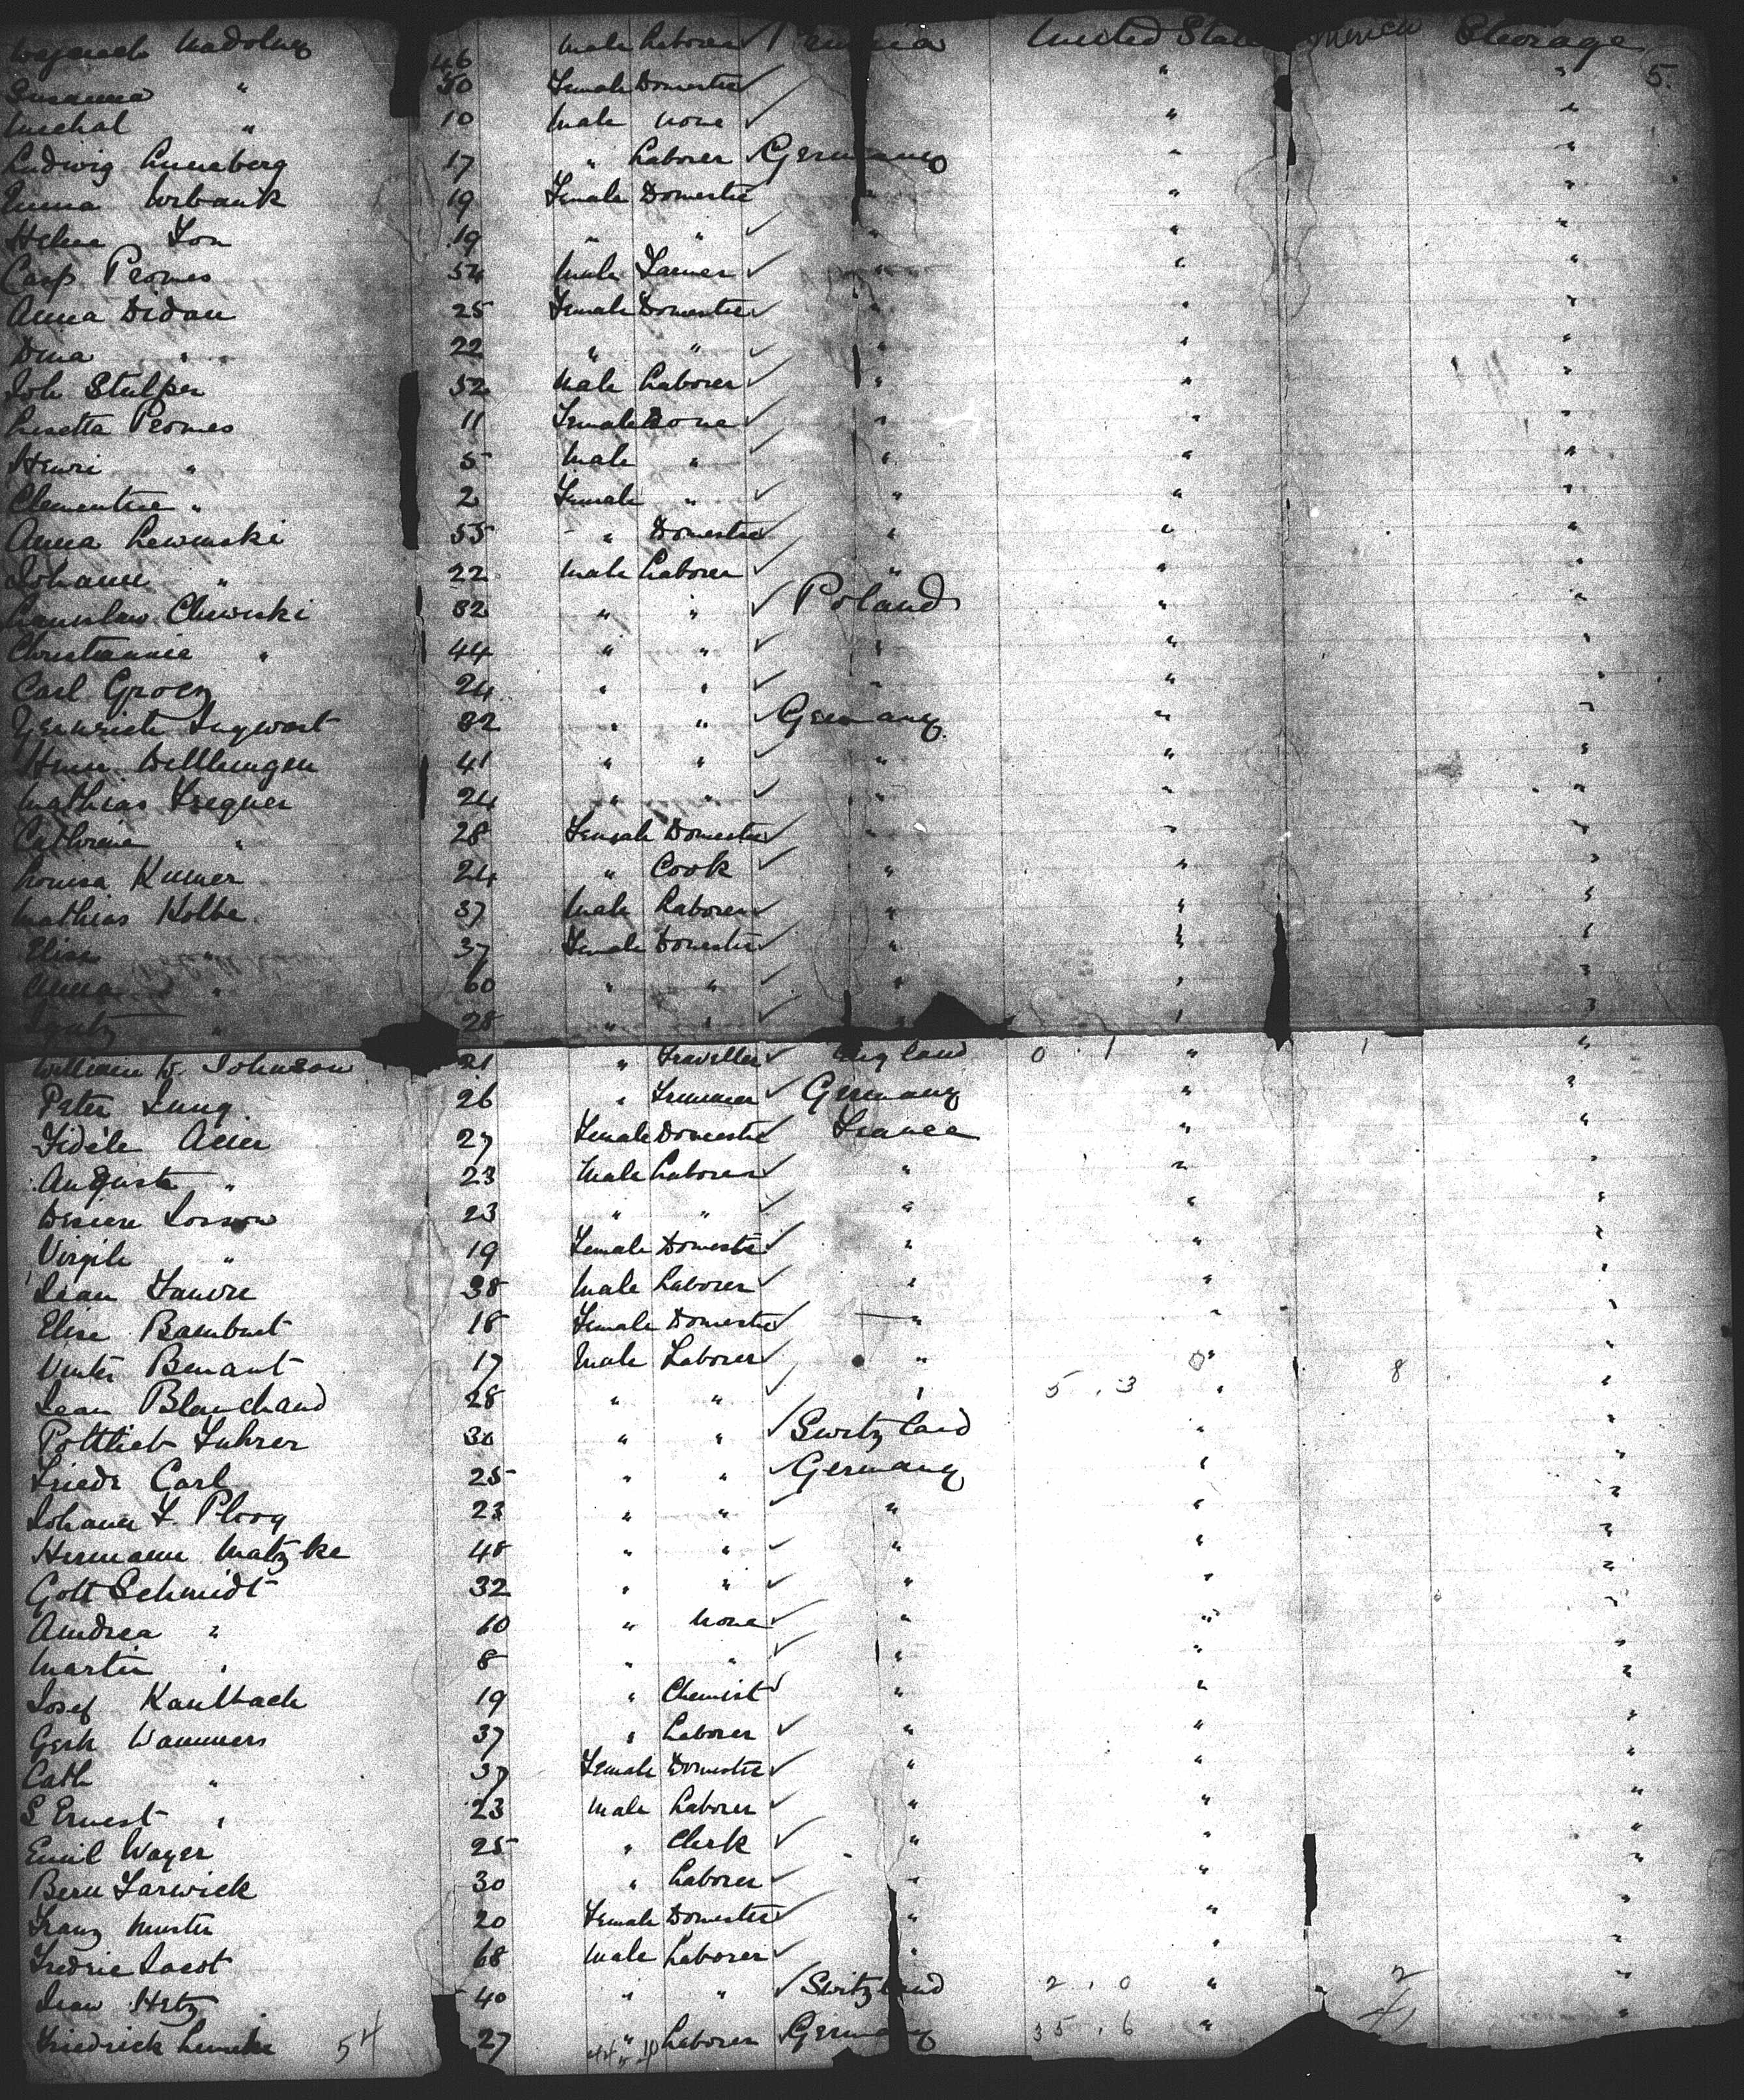 Nadolny 46 Male Laborer United States America Steerage
Susanna " 50 Female Domestic ✓ " " 5.
Michal " 10 Male None ✓ " "
Ludwig Luneberg 17 " Laborer ✓ Germany " "
Anna Urbank 19 Female Domestic " " "
Helne Fon 19 " " ✓ " " "
Casp Promes 54 Male Farmer ✓ " " "
Anna Didau 25 Female Domestic ✓ " " "
Dina " 22 " " ✓ " " "
Joh Stulper 52 Male Laborer ✓ " " "
Lusetta Promes 11 Female None ✓ " " "
Henri " 5 Male " ✓ " " "
Clementine " 2 Female " ✓ " " "
Anna Lewinski 55 " Domestic ✓ " " "
Johann " 22 Male Laborer ✓ " " "
Chewski 32 " " ✓ Poland " "
Christianne " 44 " " ✓ " " "
Carl Groen 24 " " ✓ " " "
Heinrich Ingwart 32 " " ✓ Germany " "
Herm. 41 " " ✓ " " "
Mathias Tregner 24 " " ✓ " " "
Cathrine " 28 Female Domestic ✓ " " "
Louisa Kumer 24 " Cook ✓ " " "
Mathias Kolbe 37 Male Laborer ✓ " " "
Elisa " 37 Female Domestic ✓ " " "
Anna " 60 " " ✓ " " "
Ignatz " 28 " " ✓ " " "
William W. Johnson 21 " Traveller ✓ England 0 . 1 " 1 "
Peter Lung. 26 " ✓ Germany " "
Fidéle Acier 27 Female Domestic France " "
Auguste " 23 Male Laborer ✓ " " "
Desiere Losson 23 " " ✓ " " "
Virgile " 19 Female Domestic ✓ " " "
Jean Fauvre 38 Male Laborer ✓ " " "
Elise Bambust 18 Female Domestic ✓ " " "
Benant 17 Male Laborer ✓ " " "
Jean Blanchand 28 " " ✓ " 5 . 3 " 8 "
Gottlieb Fuhrer 30 " " ✓ Switzland " "
Friedr Carl 25 " " ✓ Germany " "
Johann F. Ploog 23 " " ✓ " " "
Hermann Matzke 48 " " ✓ " " "
Gott Schmidt 32 " " ✓ " " "
Andrea " 10 " None ✓ " " "
Martin " 8 " " ✓ " " "
Josef Kaulbach 19 " Chemist ✓ " " "
Gerh Wammers 37 " Laborer ✓ " " "
Cath " 37 Female Domestic ✓ " " "
S Ernest " 23 Male Laborer ✓ " " "
Emil Wayer 25 " Clerk ✓ " " "
Bern Farwick 30 " Laborer ✓ " " "
Franz Muster 20 Female Domestic ✓ " " "
Fredric Jacot 68 Male Laborer ✓ " " "
Jean Hetz 40 " " ✓ Switzland 2 . 0 " 2 "
Friedrich Lemcke 54 27 " Laborer Germany 35 . 6 " "